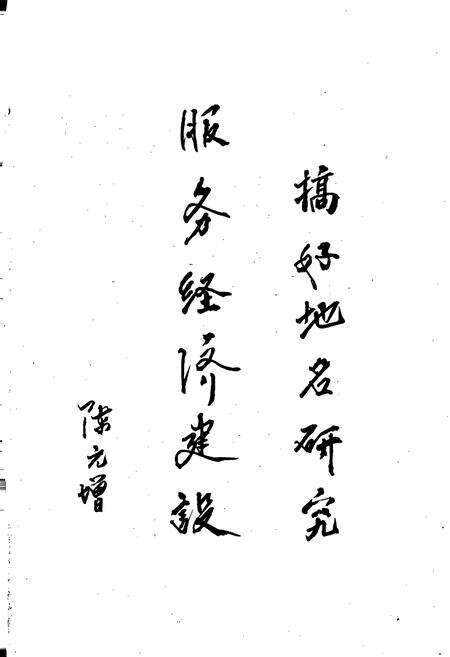 搞好地名研究
服务经济建设
陈元增